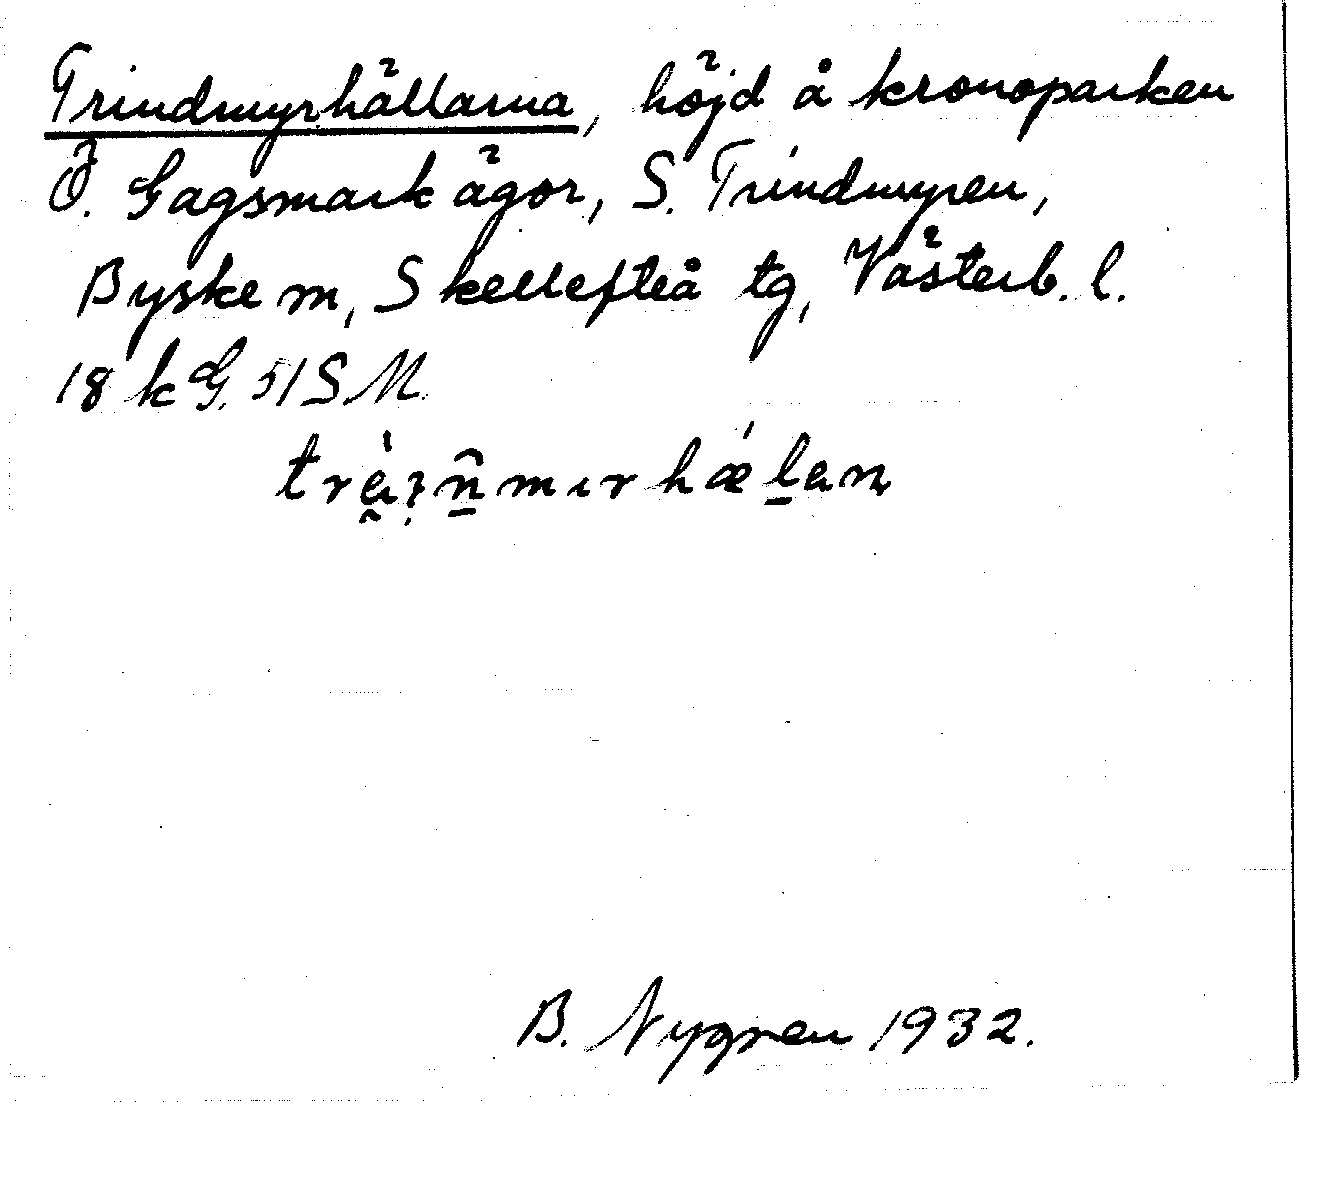 Trindmyrhällarna, höjd å kronoparken
Ö. Gagsmark ägor, S. Trindmyren,
Byske m, Skellefteå tg, Västerb. l.
18 kG. 51 S M.
B. Nygren 1932.